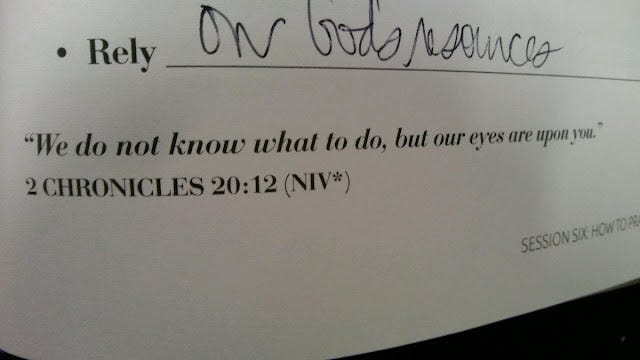 • Rely on God's resources
“We do not know what to do, but our eyes are upon you.”
2 CHRONICLES 20:12 (NIV*)
SESSION SIX: HOW TO PRA